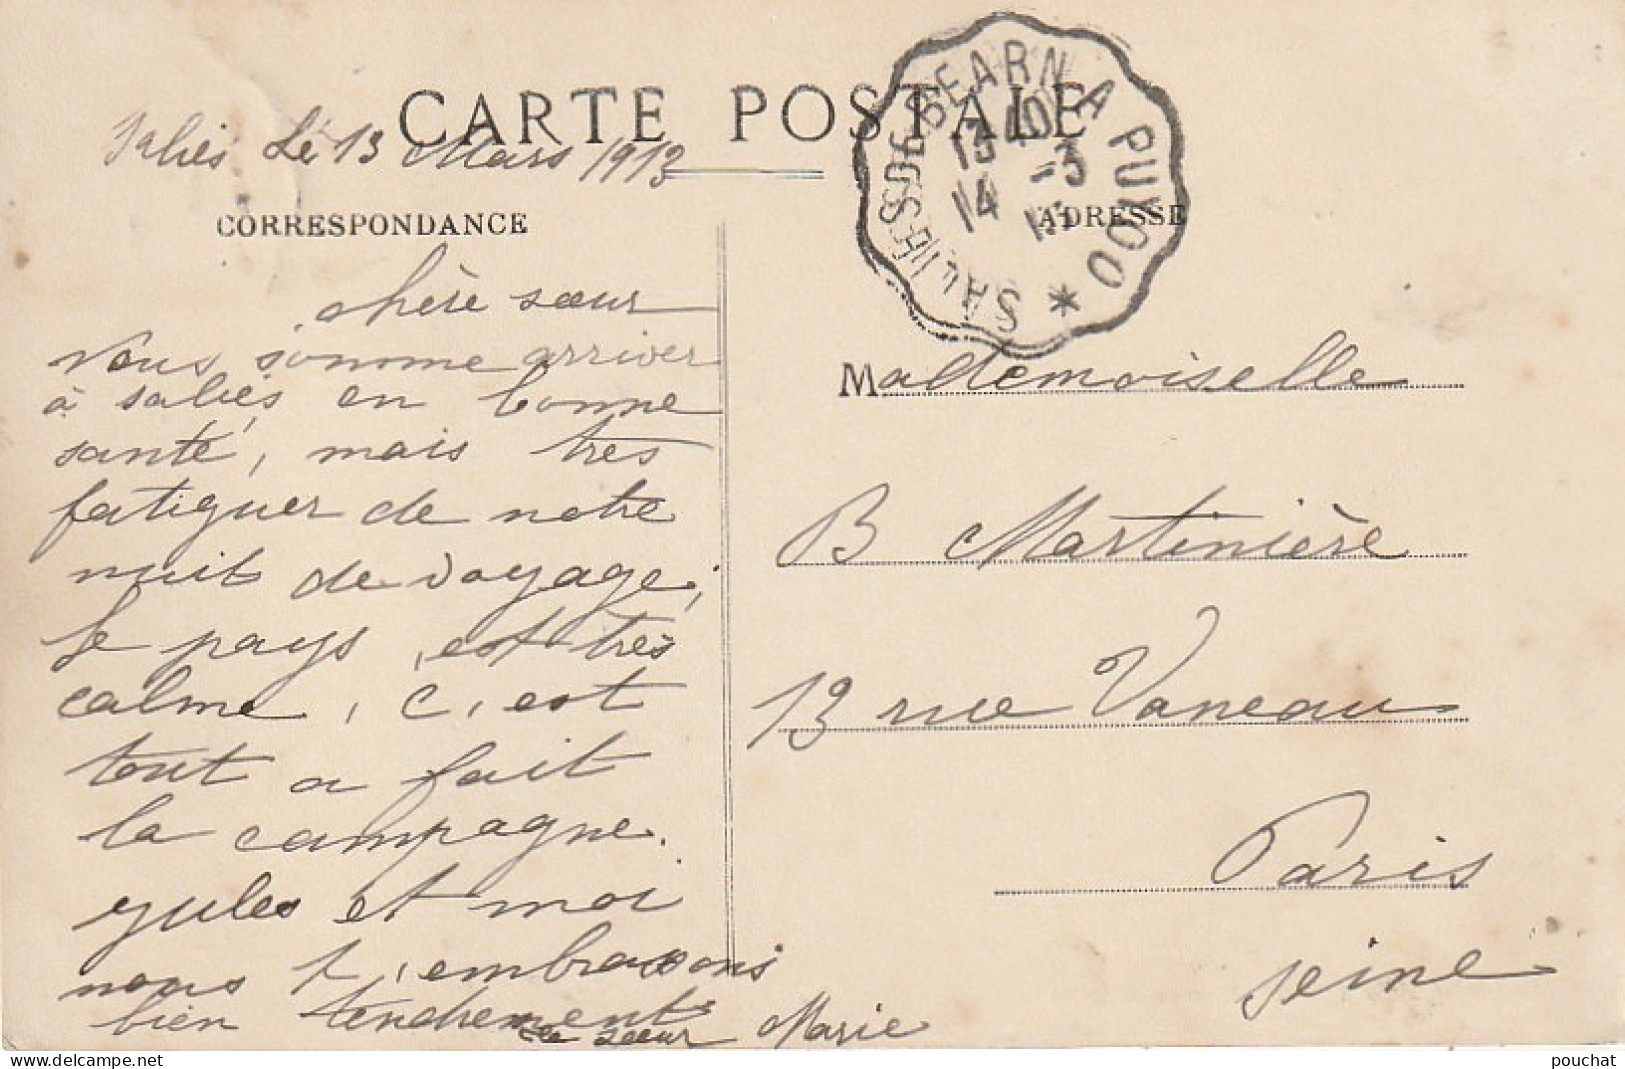 CARTE POSTALE
Saliès Le 13 Mars 1913
CORRESPONDANCE
chère sœur
Nous somome arriver
à saliés, en bonne
santé, mais tres
fatiguer de notre
nuit de voyage,
le pays, est très
calme, c, est
tout a fait
la campagne.
gules et moi
nous t, embrassons
bien tendrement
ta sœur Marie
SALIES DE BEARN A PUYOO *
13 40
14 -3
ADRESSE
Mademoiselle
B Martinière
13 rue Vaneau
Paris
seine
delcampe.net
pouchat